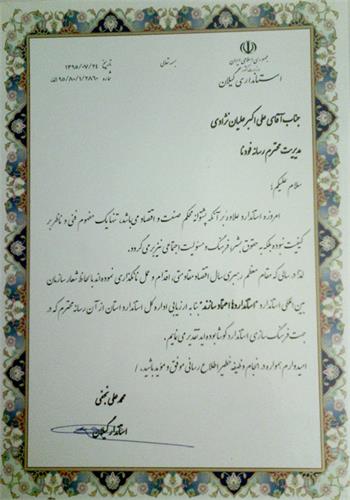 بسمه تعالی
جمهوری اسلامی ایران
وزارت کشور
استانداری گیلان
تاریخ ۱۳۹۵/۰۷/۲۴
شماره ۹۵/۸۰/۱/۲۸۶۰
جناب آقای علی اکبر علیان نژادی
مدیریت محترم رسانه فودنا
سلام علیکم؛
امروزه استاندارد علاوه بر آنکه پشتوانه محکم صنعت و اقتصاد می باشد، تنها یک مفهوم فنی و ناظر بر
کیفیت نبوده بلکه به حقوق بشر، فرهنگ و مسئولیت اجتماعی نیز بر می گردد.
لذا در سالی که مقام معظم رهبری سال اقتصاد مقاومتی، اقدام و عمل نامگذاری نموده اند با لحاظ شعار سازمان
بین المللی استاندارد "استانداردها اعتماد سازند" بنا به ارزیابی اداره کل استاندارد استان از آن رسانه محترم که در
جهت فرهنگ سازی استاندارد کوشا بوده اید تقدیر می نمایم.
امیدوارم همواره در انجام وظیفه خطیر اطلاع رسانی موفق و موید باشید./
محمد علی نجفی
استاندار گیلان